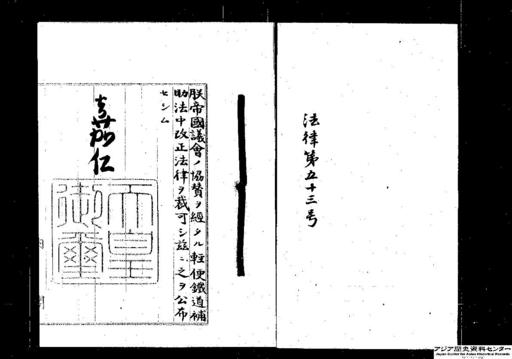 法律第五十三号
朕帝國議會ノ協賛ヲ經タル輕便鐵道補
助法中改正法律ヲ裁可シ茲ニ之ヲ公布
セシム
嘉仁
天皇
御璽
アジア歴史資料センター
Japan Center for Asian Historical Records